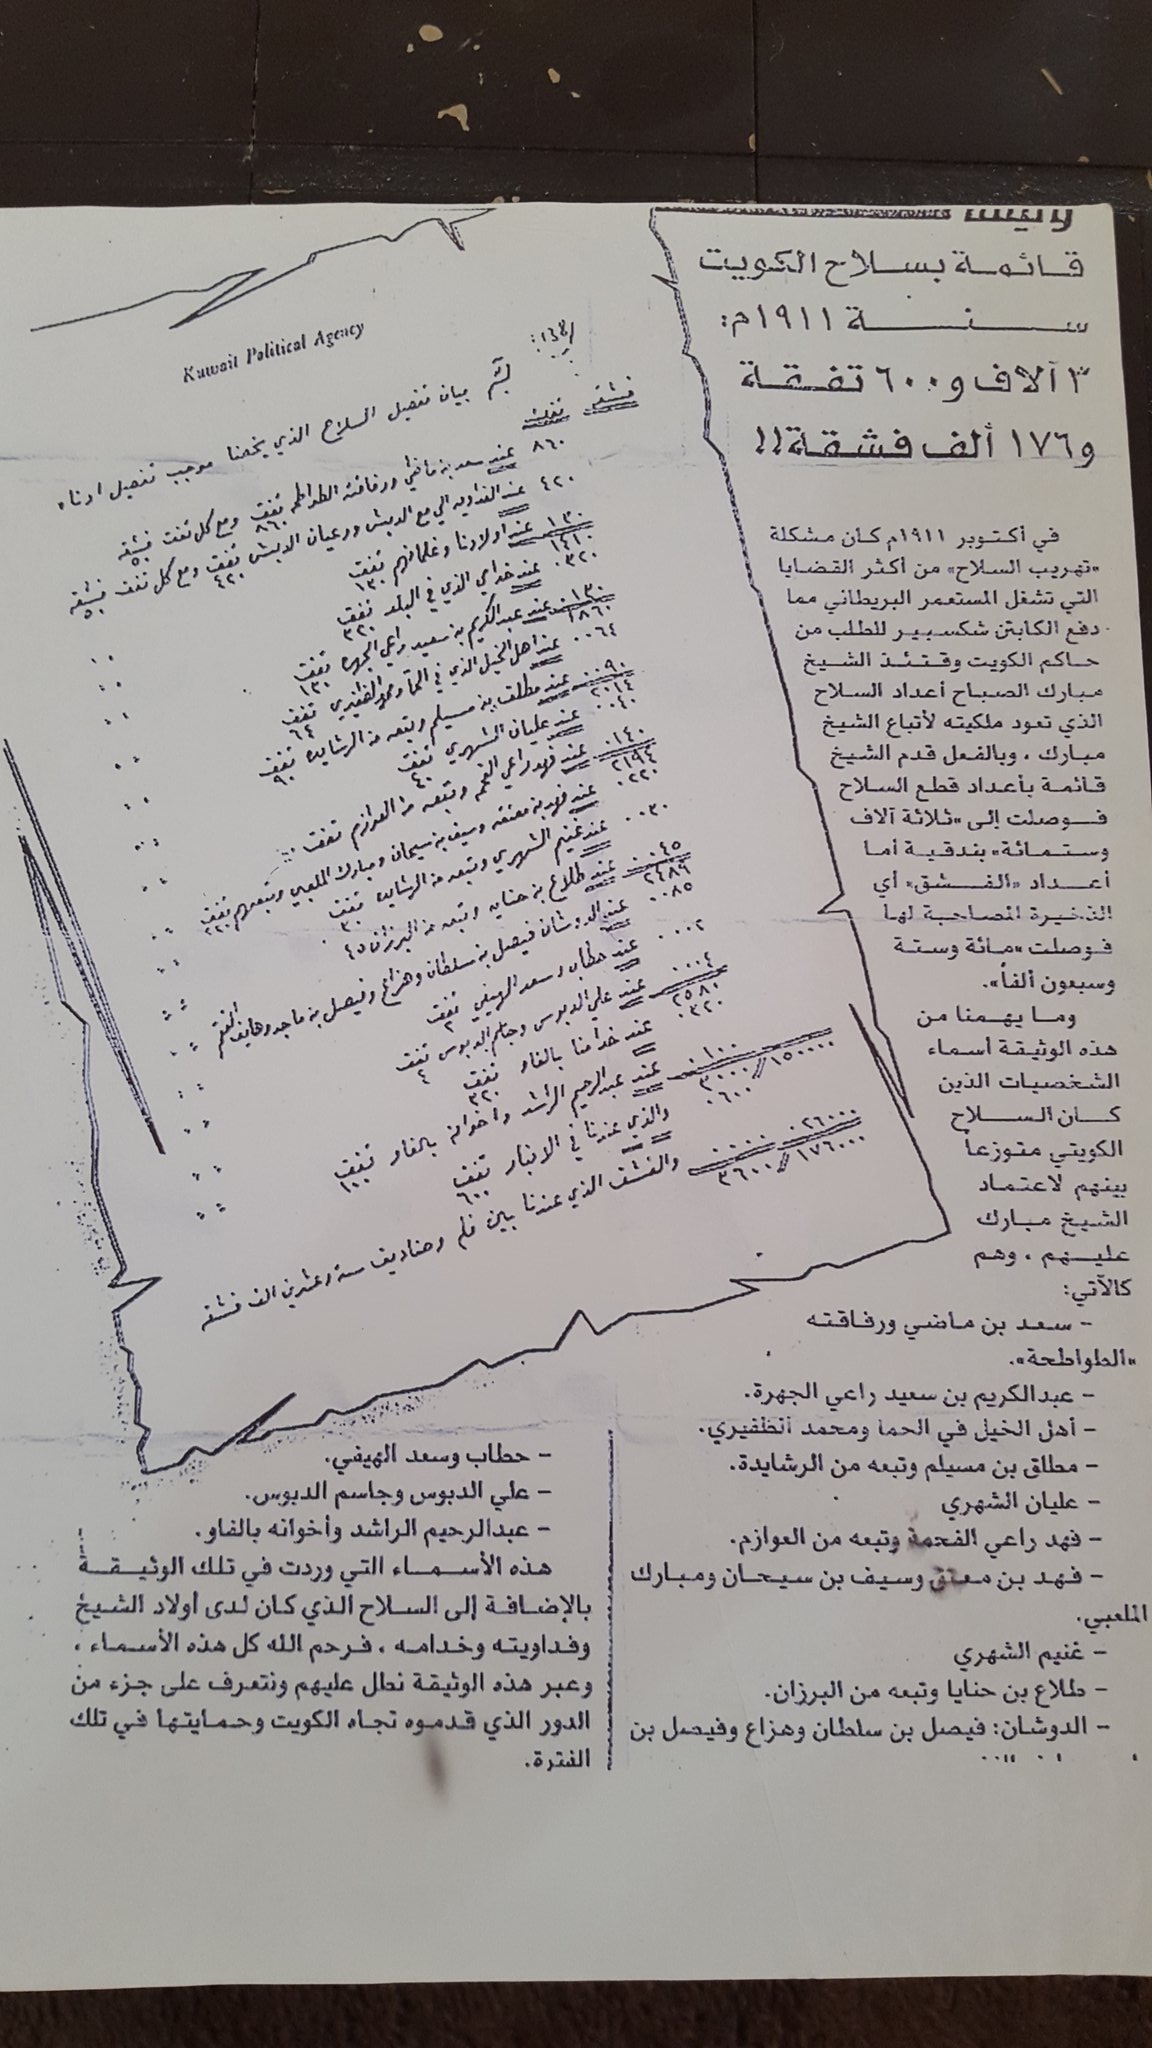 وثيقة
قائمة بسلاح الكويت
سنة ١٩١١م:
٣ آلاف و٦٠٠ تفقة
و١٧٦ ألف فشقة!!
في أكتوبر ١٩١١م كان مشكلة
«تهريب السلاح» من أكثر القضايا
التي تشغل المستعمر البريطاني مما
دفع الكابتن شكسبير للطلب من
حاكم الكويت وقتئذ الشيخ
مبارك الصباح أعداد السلاح
الذي تعود ملكيته لأتباع الشيخ
مبارك ، وبالفعل قدم الشيخ
قائمة بأعداد قطع السلاح
فوصلت إلى «ثلاثة آلاف
وستمائة» بندقية أما
أعداد «الفشق» أي
الذخيرة المصاحبة لها
فوصلت «مائة وستة
وسبعون ألفاً».
وما يهمنا من
هذه الوثيقة أسماء
الشخصيات الذين
كان السلاح
الكويتي متوزعاً
بينهم لاعتماد
الشيخ مبارك
عليهم ، وهم
كالآتي:
- سعد بن ماضي ورفاقته
«الطواطحة».
- عبدالكريم بن سعيد راعي الجهرة.
- أهل الخيل في الحما ومحمد الظفيري.
- مطلق بن مسيلم وتبعه من الرشايدة.
- عليان الشهري
- فهد راعي الفحمة وتبعه من العوازم.
- فهد بن معتق وسيف بن سيحان ومبارك
الملعبي.
- غنيم الشهري
- طلاع بن حنايا وتبعه من البرزان.
- الدوشان: فيصل بن سلطان وهزاع وفيصل بن
- حطاب وسعد الهيفي.
- علي الدبوس وجاسم الدبوس.
- عبدالرحيم الراشد وأخوانه بالفاو.
هذه الأسماء التي وردت في تلك الوثيقة
بالإضافة إلى السلاح الذي كان لدى أولاد الشيخ
وفداويته وخدامه ، فرحم الله كل هذه الأسماء ،
وعبر هذه الوثيقة نطل عليهم ونتعرف على جزء من
الدور الذي قدموه تجاه الكويت وحمايتها في تلك
الفترة.
Kuwait Political Agency
بيان تفصيل السلاح الذي يخصنا موجب تفصيل ادناه
فشقه تفقت
٨٦٠ عند سعد بن ماضي ورفاقته الطواطحه تفقت ٨٦٠ ومع كل تفقت فشقه ٥٠
٤٢٠ عند الفداويه الي مع الدبش ورعيان الدبش تفقت ٤٢٠ ومع كل تفقت فشقه ٥٠
١٣٠ عند اولادنا وغلمانهم تفقت ١٣٠
١٤١٠
٠٣٢٠ عند خدامي الذي في البلد تفقت ٣٢٠
١٣٠ عند عبدالكريم بن سعيد راعي الجهره تفقت ١٣٠
١٨٦٠
٠٠٦٤ عند اهل الخيل الذي في الحما ومحمد الظفيري تفقت ٦٤
٠٩٠ عند مطلق بن مسيلم وتبعه من الرشايده تفقت ٩٠
٢٠١٤
٠٠٤٠ عند عليان الشهري تفقت ٤٠
٠١٤٠ عند فهد راعي الفحمه وتبعه من العوازم تفقت
٢١٩٤
٠٢٢٠ عند فهد بن معتق وسيف بن سيحان ومبارك الملعبي وتبعهم تفقت ٢٢٠
٠٠٣٠ عند غنيم الشهري وتبعه من الرشايده تفقت ٣٠
٠٠٤٥ عند طلاع بن حنايه وتبعه من البرزان ٤٥
٢٤٨٩
٠٠٨٥ عند الدوشان فيصل بن سلطان وهزاع وفيصل بن ماجد وهايف
٠٠٠٢ عند حطاب وسعد الهيفي تفقت ٢
٠٠٠٤ عند علي الدبوس وجاسم الدبوس تفقت ٤
٢٥٨٠
٠٣٢٠ عند خدامنا بالفاو تفقت ٣٢٠
٠١٠٠ عند عبدالرحيم الراشد واخوانه بالفاو تفقت ١٠٠
٣٠٠٠//١٥٠٠٠٠
٠٦٠٠ والذي عندنا في الانبار تفقت ٦٠٠
٠٠٠٠ ٠٢٦٠٠٠ والفشق الذي عندنا بالين فلم وصناديق ستة وعشرين الف فشقه
٣٦٠٠//١٧٦٠٠٠